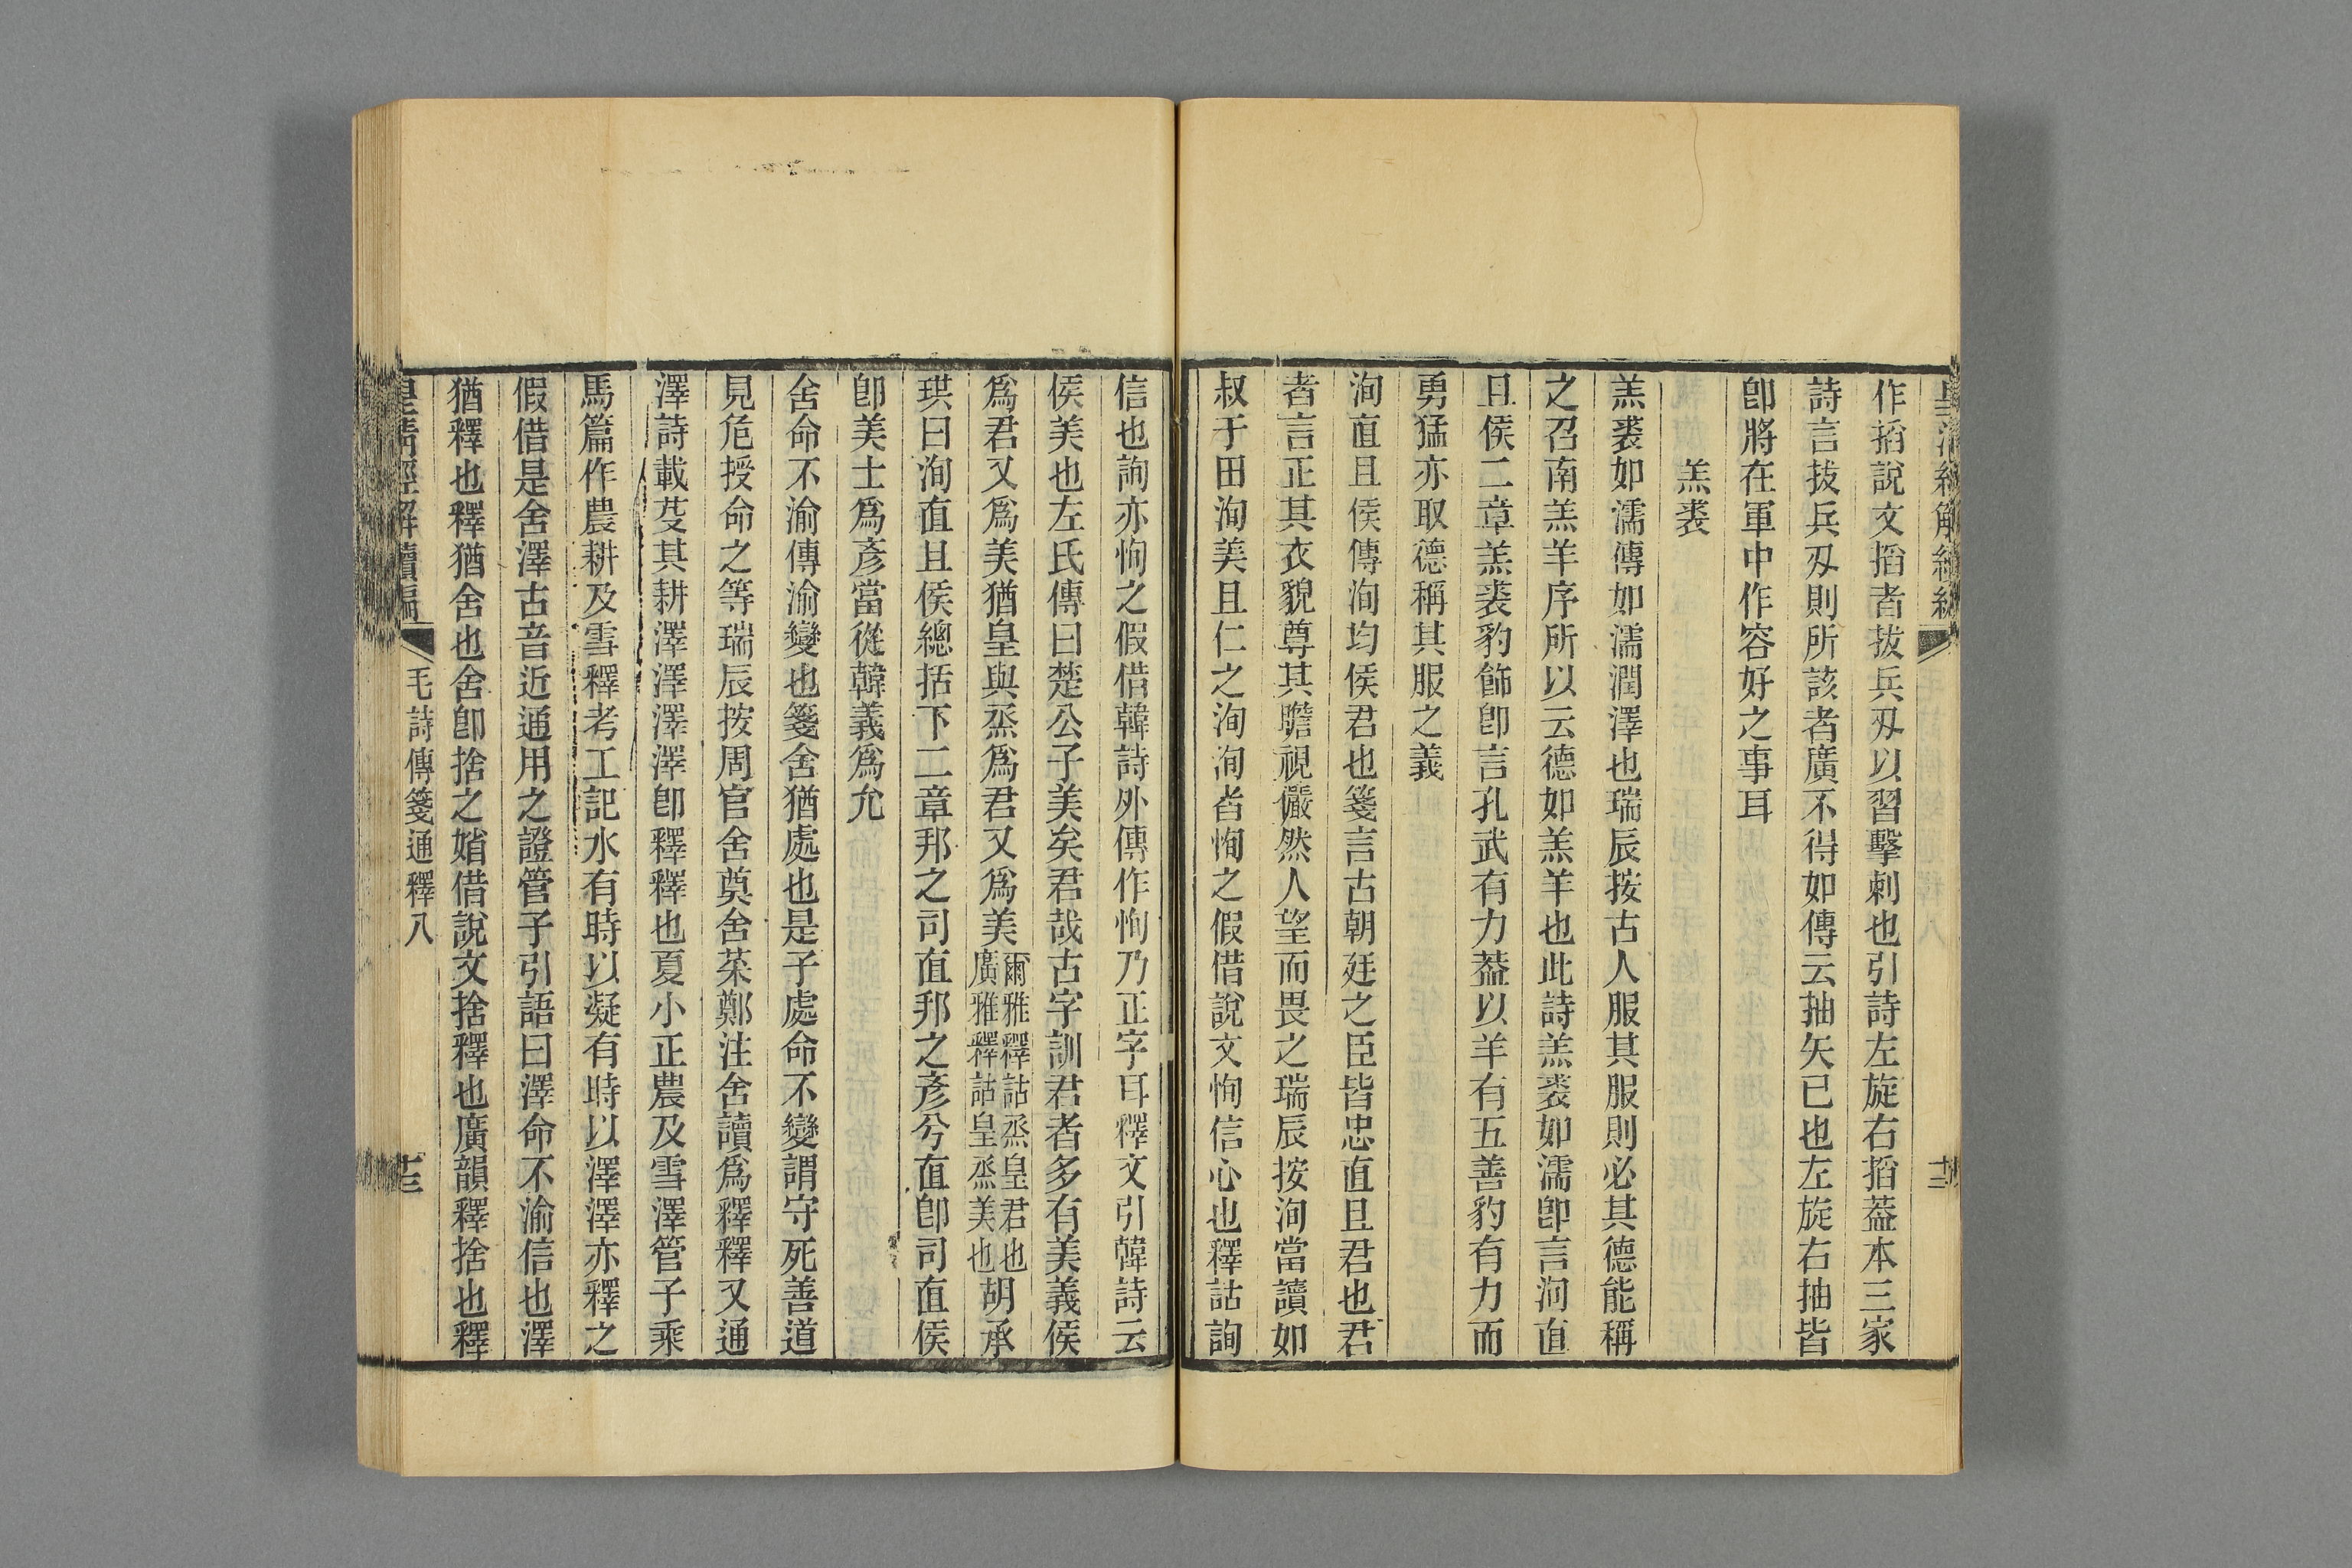 作搯說文搯者拔兵刄以習擊刺也引詩左旋右搯葢本三家
詩言拔兵刄則所該者廣不得如傳云抽矢已也左旋右抽皆
卽將在軍中作容好之事耳
羔裘
羔裘如濡傳如濡潤澤也瑞辰按古人服其服則必其德能稱
之召南羔羊序所以云德如羔羊也此詩羔裘如濡卽言洵直
且侯二章羔裘豹飾卽言孔武有力葢以羊有五善豹有力而
勇猛亦取德稱其服之義
洵直且侯傳洵均侯君也箋言古朝廷之臣皆忠直且君也君
者言正其衣貌尊其瞻視儼然人望而畏之瑞辰按洵當讀如
叔于田洵美且仁之洵洵者恂之假借說文恂信心也釋詁詢
信也詢亦恂之假借韓詩外傳作恂乃正字耳釋文引韓詩云
侯美也左氏傳曰楚公子美矣君哉古字訓君者多有美義侯
爲君又爲美猶皇與烝爲君又爲美爾雅釋詁烝皇君也廣雅釋詁皇烝美也胡承
珙曰洵直且侯總括下二章邦之司直邦之彥兮直卽司直侯
卽美士爲彥當從韓義爲允
舍命不渝傳渝變也箋舍猶處也是子處命不變謂守死善道
見危授命之等瑞辰按周官舍奠舍菜鄭注舍讀爲釋釋又通
澤詩載芟其耕澤澤澤澤卽釋釋也夏小正農及雪澤管子乘
馬篇作農耕及雪釋考工記水有時以凝有時以澤澤亦釋之
假借是舍澤古音近通用之證管子引語曰澤命不渝信也澤
猶釋也釋猶舍也舍卽捨之婧借說文捨釋也廣韻釋捨也釋
皇清經解續編
毛詩傳箋通釋八
十三